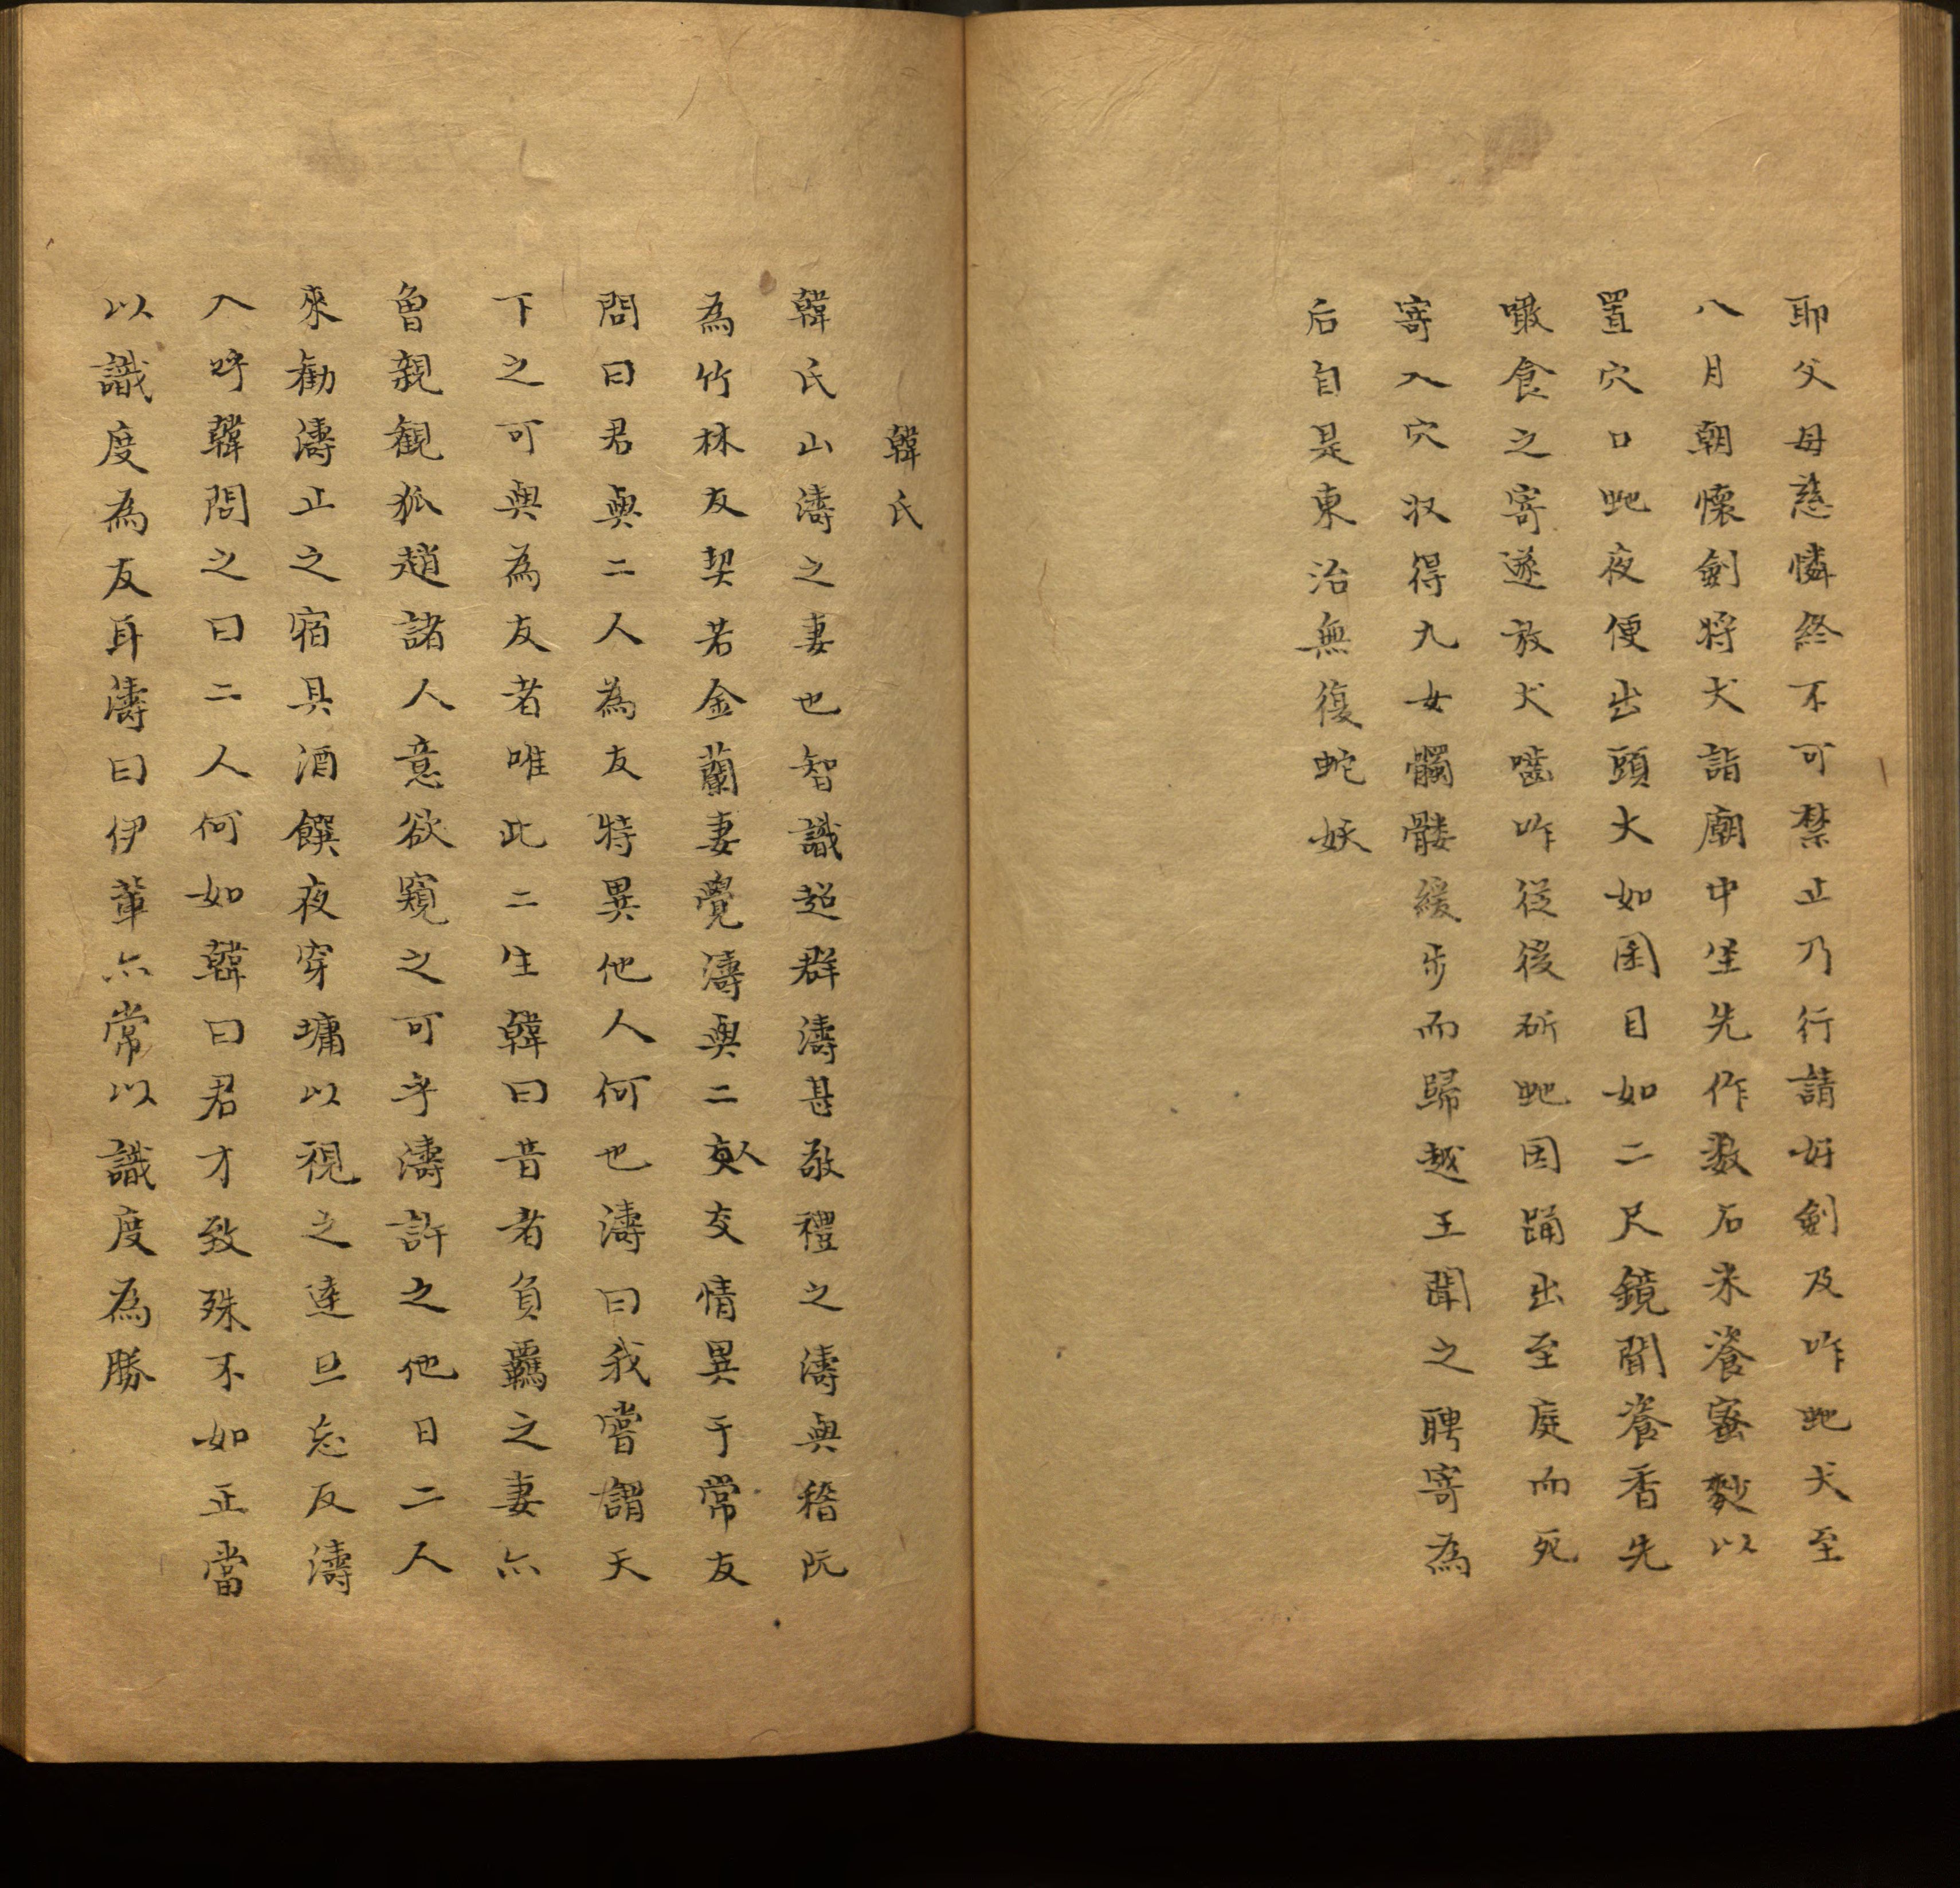 耶父母慈憐終不可禁止乃行請好劍及咋虵犬至
八月朝懷劍將犬詣廟中坐先作数石米餈蜜麨以
置穴口虵夜便出頭大如囷目如二尺鏡聞餈香先
噉食之寄遂放犬嚙咋從後斫虵因踊出至庭而死
寄入穴収得九女髑髏緩步而歸越王聞之聘寄為
后自是東治無復蛇妖
韓氏
韓氏山濤之妻也智識超群濤甚敬禮之濤與嵇阮
為竹林友契若金蘭妻覺濤與二人交情異于常友
問曰君與二人為友特異他人何也濤曰我嘗謂天
下之可與為友者唯此二生韓曰昔者負羈之妻亦
曾親観狐趙諸人意欲窺之可乎濤許之他日二人
來勸濤止之宿具酒饌夜穿墉以視之達旦忘反濤
入呼韓問之曰二人何如韓曰君才致殊不如正當
以識度為友耳濤曰伊輩亦常以識度為勝